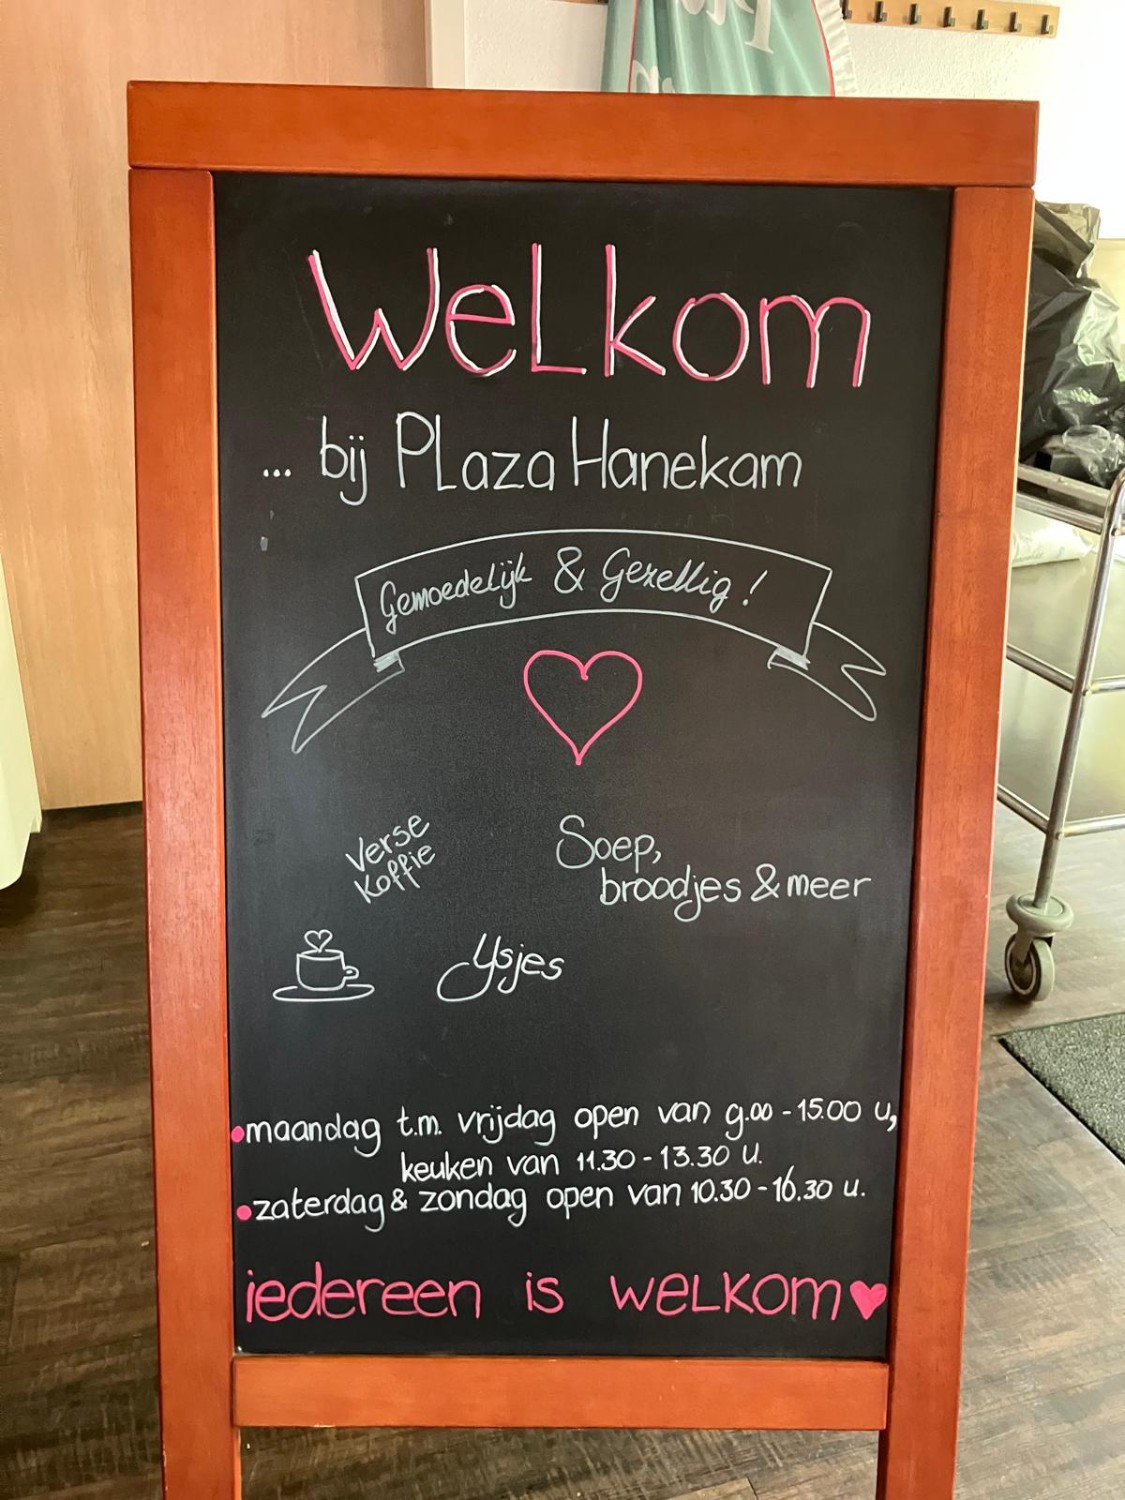 Welkom
... bij Plaza Hanekam
Gemoedelijk & Gezellig !
Verse
Koffie
Soep,
broodjes & meer
Ysjes
•maandag t.m. vrijdag open van 9.00 - 15.00 u,
keuken van 11.30 - 13.30 u.
•zaterdag & zondag open van 10.30 - 16.30 u.
iedereen is welkom♥